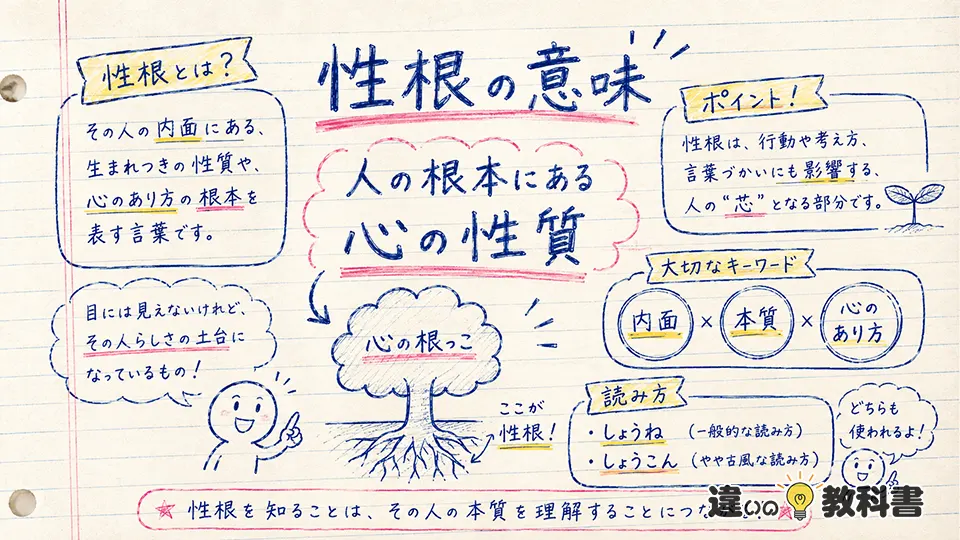 性根の意味
性根とは?
その人の内面にある、
生まれつきの性質や、
心のあり方の根本を
表す言葉です。
人の根本にある
心の性質
ポイント!
性根は、行動や考え方、
言葉づかいにも影響する、
人の“芯”となる部分です。
目には見えないけれど、
その人らしさの土台に
なっているもの!
心の根っこ
ここが
性根!
大切なキーワード
内面×本質×心の
あり方
読み方
・しょうね (一般的な読み方)
・しょうこん (やや古風な読み方)
どちらも
使われるよ!
☆ 性根を知ることは、その人の本質を理解することにつな
違いの教科書